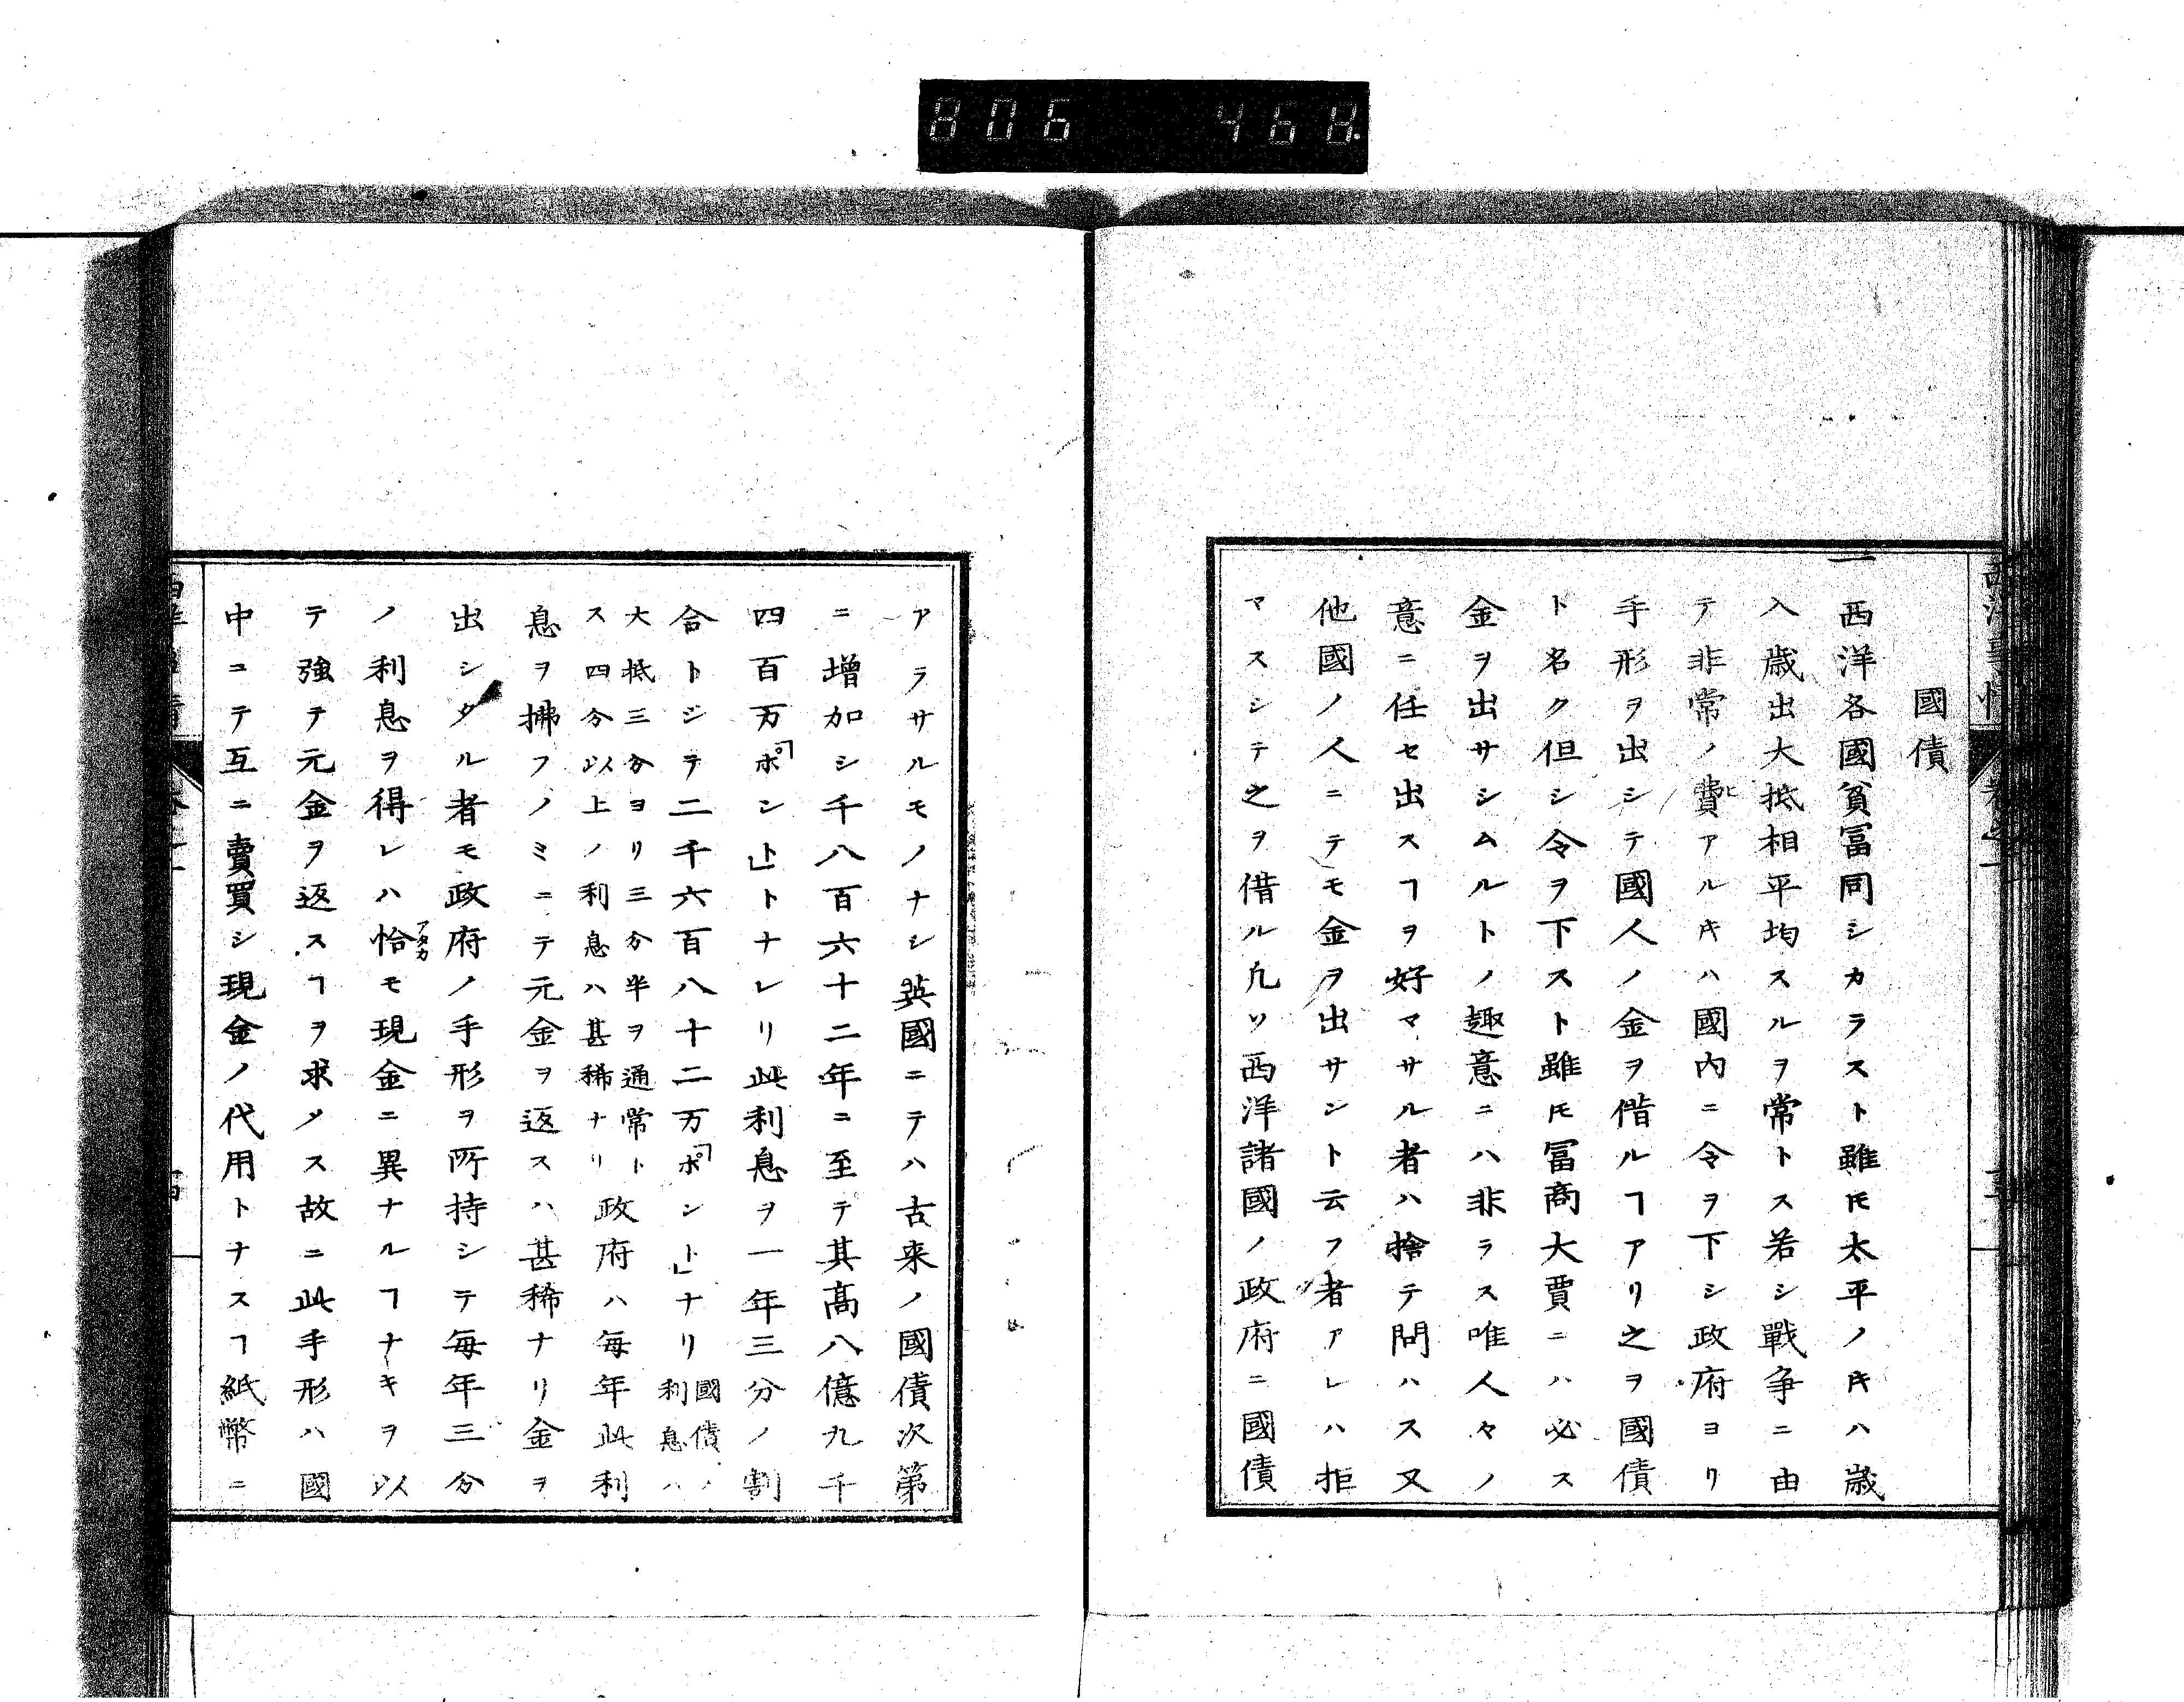 806 468
國債
一西洋各國貧冨同シカラスト雖𪜈太平ノ𪜈キハ歳
入歳出大抵相平均スルヲ常トス若シ戰争ニ由
テ非常ノ費ヒアルキハ國内ニ令ヲ下シ政府ヨリ
手形ヲ出シテ國人ノ金ヲ借ルヿアリ之ヲ國債
ト名ク但シ令ヲ下スト雖𪜈冨商大賈ニハ必ス
金ヲ出サシムルトノ趣意ニハ非ラス唯人々ノ
意ニ任セ出スヿヲ好マサル者ハ捨テ問ハス又
他國ノ人ニテモ金ヲ出サント云フ者アレハ拒
マスシテ之ヲ借ル凢ソ西洋諸國ノ政府ニ國債
アラサルモノナシ英國ニテハ古来ノ國債次第
ニ増加シ千八百六十二年ニ至テ其高八億九千
四百万「ポント」トナレリ此利息ヲ一年三分ノ割
合トシテ二千六百八十二万「ポント」ナリ國債ノ利息ハ
大抵三分ヨリ三分半ヲ通常トス四分以上ノ利息ハ甚稀ナリ政府ハ毎年此利
息ヲ拂フノミニテ元金ヲ返スハ甚稀ナリ金ヲ
出シタル者モ政府ノ手形ヲ所持シテ毎年三分
ノ利息ヲ得レハ恰アタカモ現金ニ異ナルヿナキヲ以
テ強テ元金ヲ返スヿヲ求メス故ニ此手形ハ國
中ニテ互ニ賣買シ現金ノ代用トナスヿ紙幣ニ